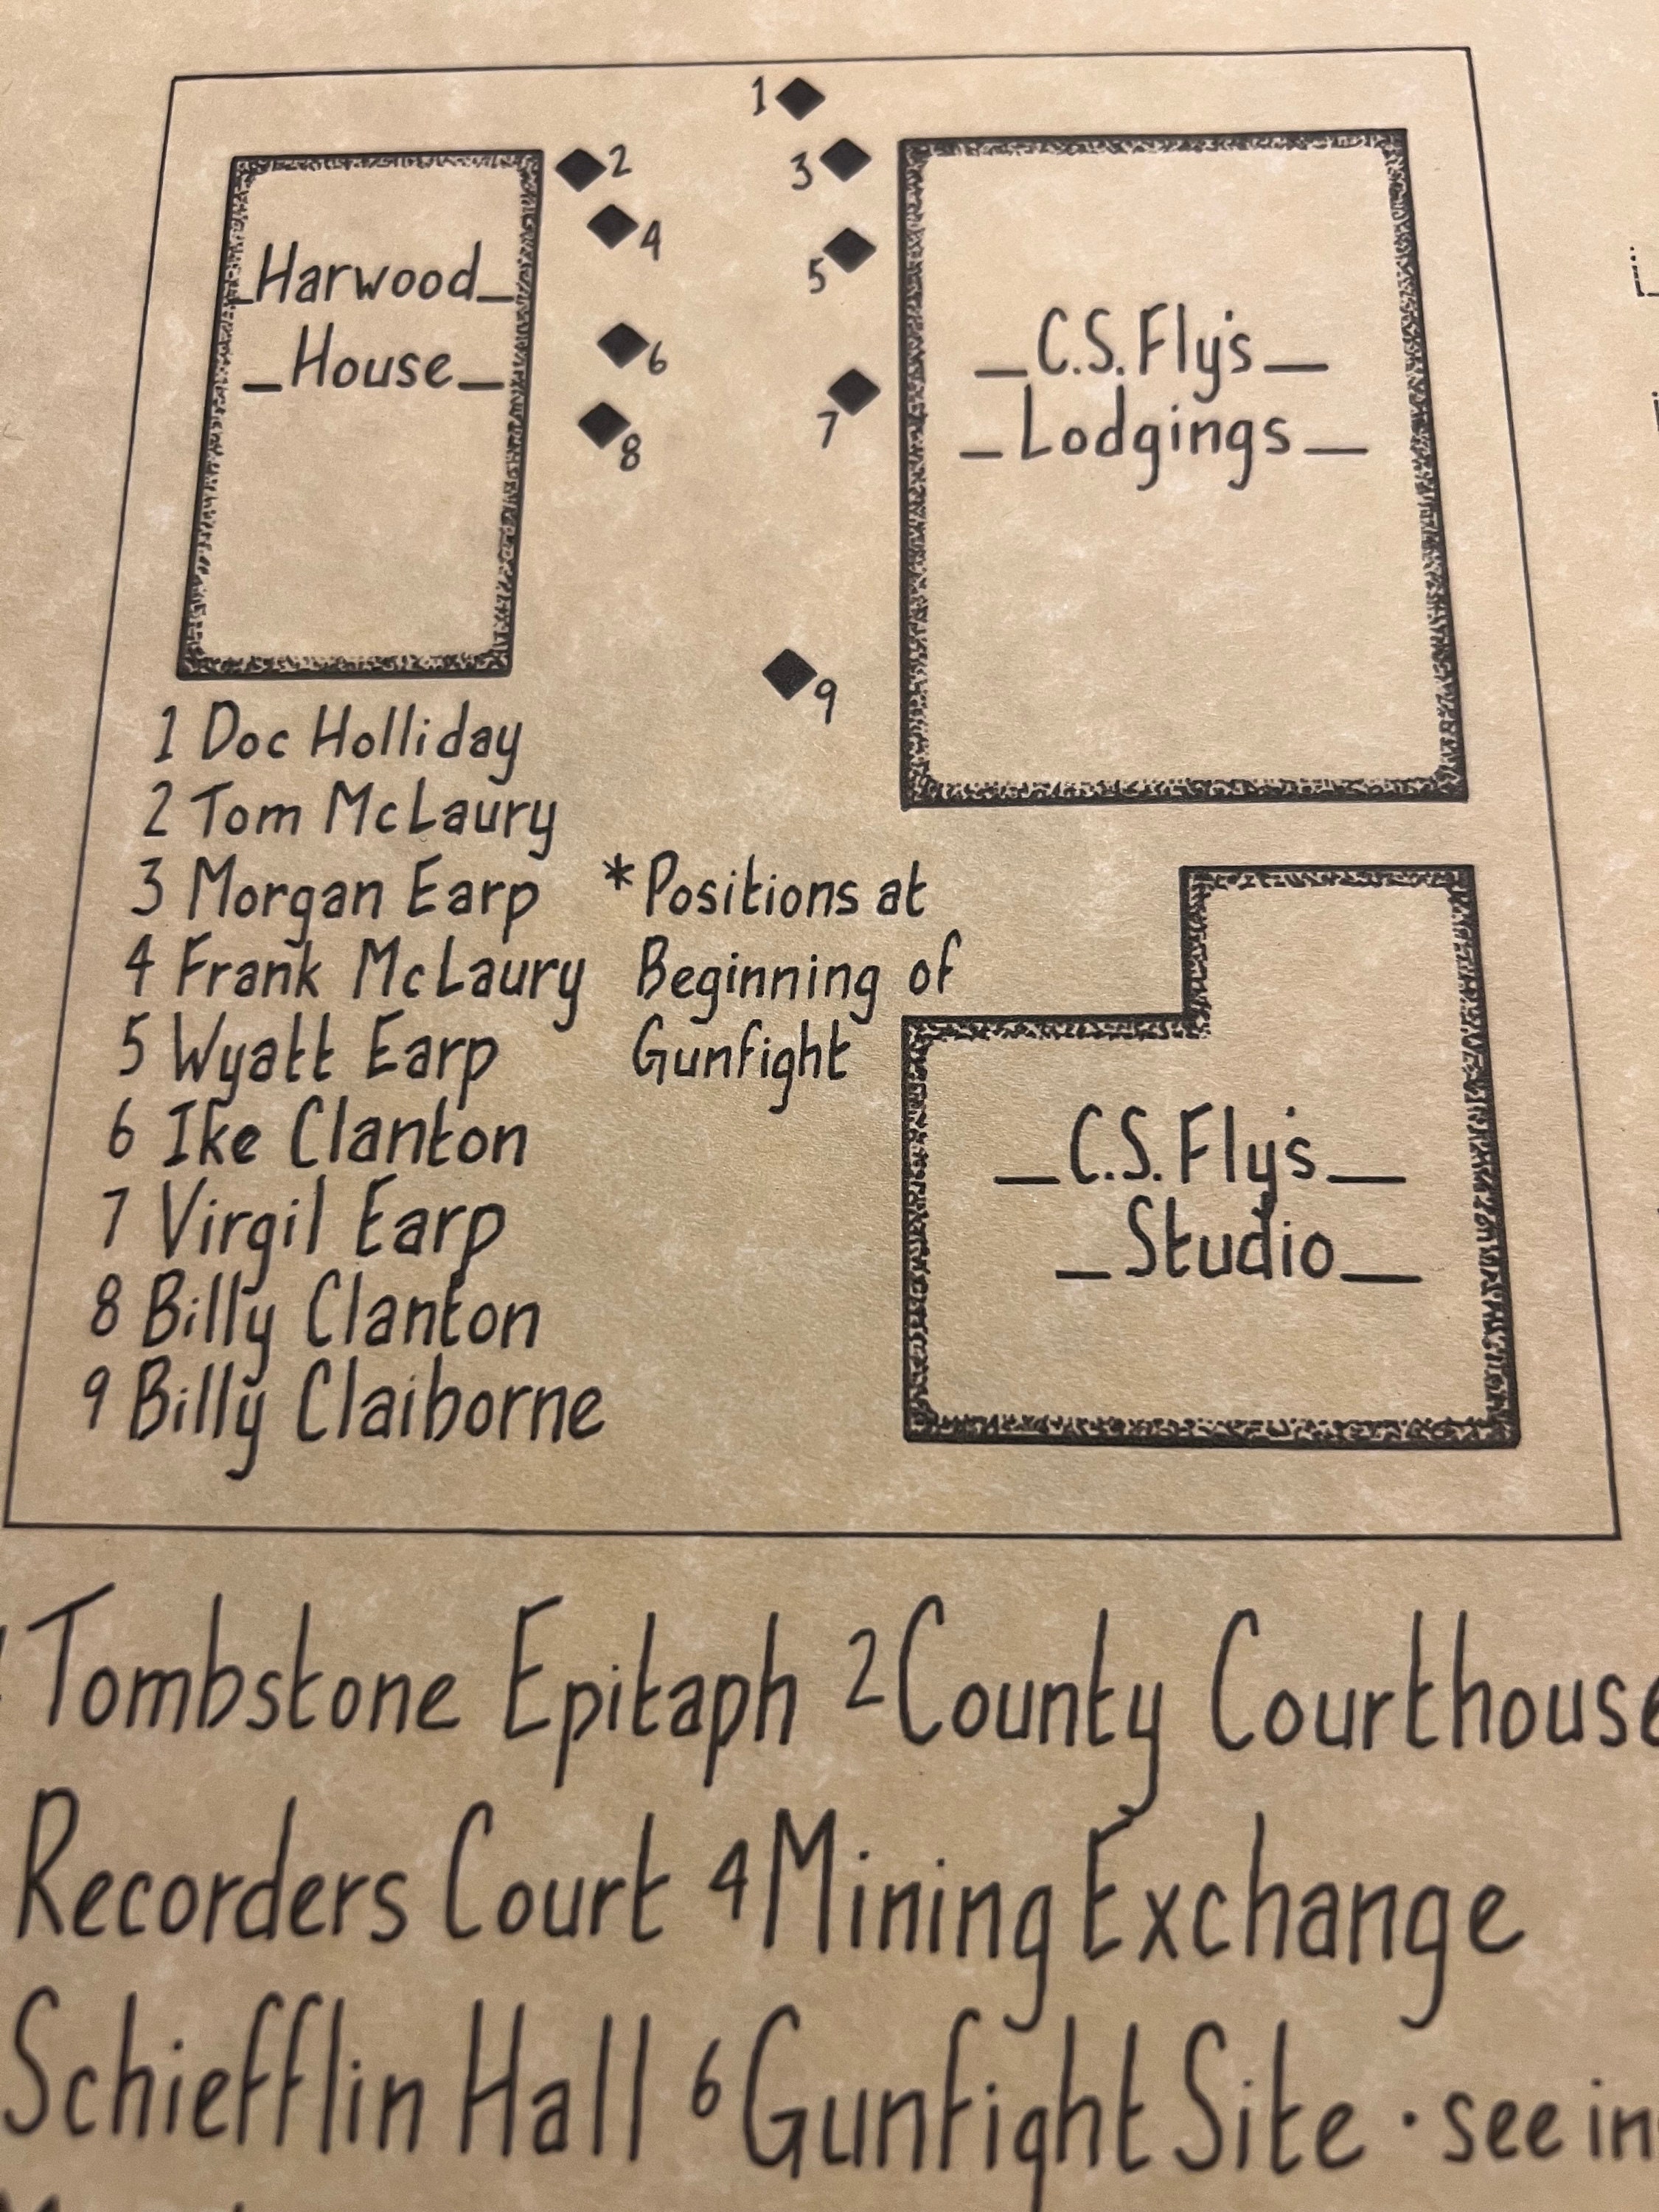 1
2
3
4
5
6
7
8
9
_Harwood_
_House_
_C.S. Fly's_
_Lodgings_
1 Doc Holliday
2 Tom McLaury
3 Morgan Earp
4 Frank McLaury
5 Wyatt Earp
6 Ike Clanton
7 Virgil Earp
8 Billy Clanton
9 Billy Claiborne
*Positions at
Beginning of
Gunfight
_C.S. Fly's_
_Studio_
Tombstone Epitaph 2 County Courthouse
Recorders Court 4 Mining Exchange
Schiefflin Hall 6 Gunfight Site · see